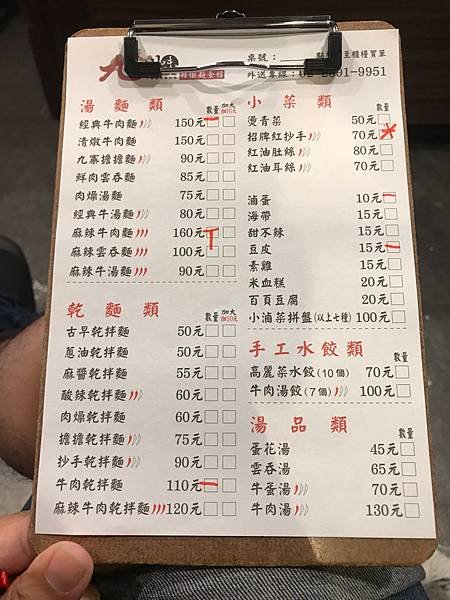 九
鮮燉麵食館
桌號：
至櫃檯買單
外送專線：
湯麵類
數量 加大 加10元
經典牛肉麵 150元
清燉牛肉麵 150元
九寨擔擔麵 90元
鮮肉雲吞麵 85元
肉燥湯麵 75元
經典牛湯麵 80元
麻辣牛肉麵 160元
麻辣雲吞麵 100元
麻辣牛湯麵 90元
乾麵類
數量 加大 加10元
古早乾拌麵 50元
蔥油乾拌麵 50元
麻醬乾拌麵 55元
酸辣乾拌麵 60元
肉燥乾拌麵 60元
擔擔乾拌麵 75元
抄手乾拌麵 90元
牛肉乾拌麵 110元
麻辣牛肉乾拌麵 120元
小菜類
數量
燙青菜 50元
招牌紅抄手 70元
紅油肚絲 80元
紅油耳絲 70元
滷蛋 10元
海帶 15元
甜不辣 15元
豆皮 15元
素雞 15元
米血糕 20元
百頁豆腐 20元
小滷菜拼盤(以上七種) 100元
手工水餃類
數量
高麗菜水餃(10個) 70元
牛肉湯餃(7個) 100元
湯品類
數量
蛋花湯 45元
雲吞湯 65元
牛蛋湯 70元
牛肉湯 130元